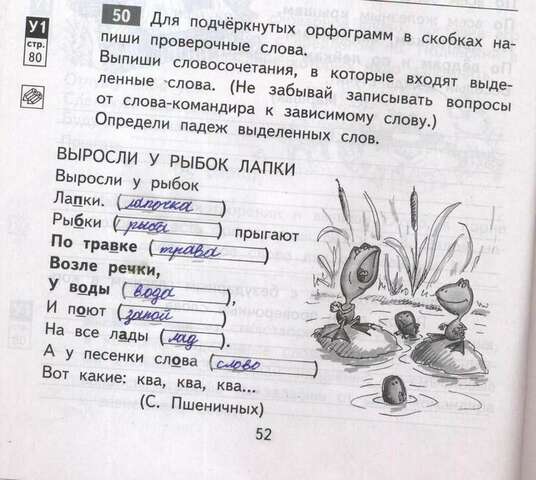 У1
стр.
80
50 Для подчёркнутых орфограмм в скобках на-
пиши проверочные слова.
Выпиши словосочетания, в которые входят выде-
ленные слова. (Не забывай записывать вопросы
от слова-командира к зависимому слову.)
Определи падеж выделенных слов.
ВЫРОСЛИ У РЫБОК ЛАПКИ
Выросли у рыбок
Лапки. (лапочка)
Рыбки (рыбы) прыгают
По травке (трава)
Возле речки,
У воды (вода),
И поют (запой)
На все лады (лад).
А у песенки слова (слово)
Вот какие: ква, ква, ква...
(С. Пшеничных)
52